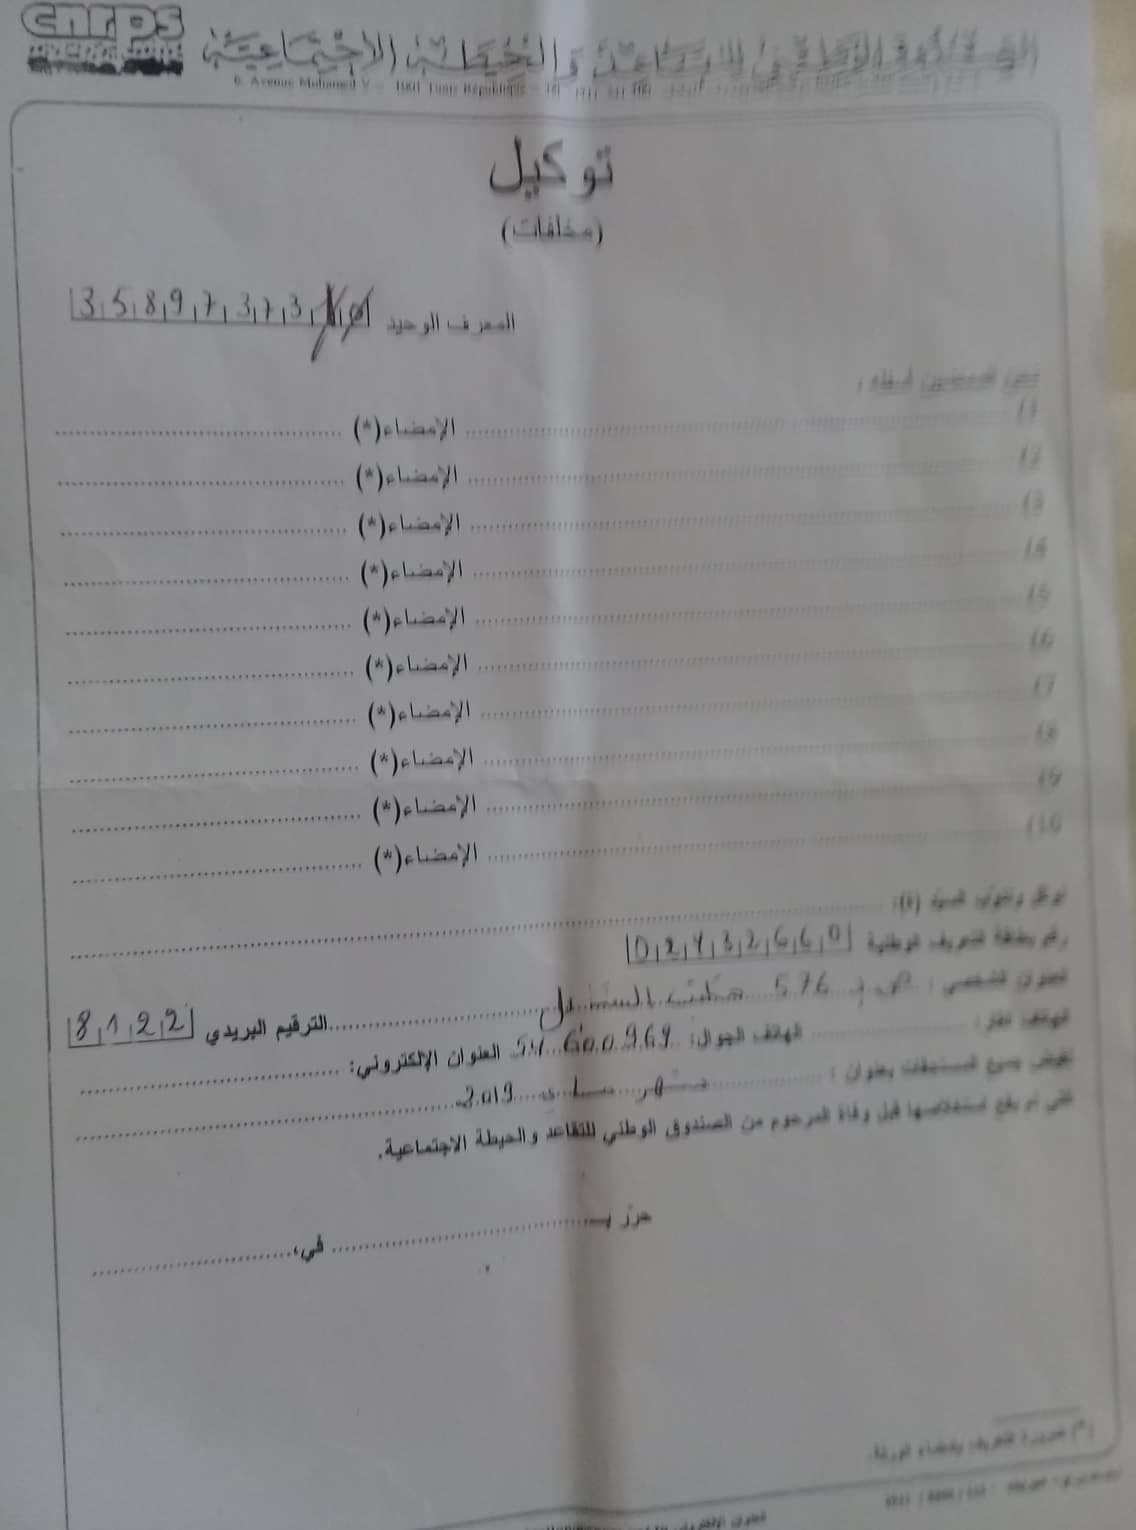 cnrps
الصندوق الوطني للتقاعد والحيطة الاجتماعية
6, Avenue Mohamed V - 1001 Tunis République
توكيل
(مخلفات)
المعرف الوحيد 3 5 8 9 7 3 7 3
نحن الممضين أسفله :
1) الإمضاء(*)
2) الإمضاء(*)
3) الإمضاء(*)
4) الإمضاء(*)
5) الإمضاء(*)
6) الإمضاء(*)
7) الإمضاء(*)
8) الإمضاء(*)
9) الإمضاء(*)
10) الإمضاء(*)
نوكل السيد (ة):
رقم بطاقة التعريف الوطنية 0 2 4 3 2 6 6 0
العنوان الشخصي : ص ب 576 مكتب الترقيم البريدي 8 1 2 2
الهاتف القار : الهاتف الجوال: 54 600 969 العنوان الإلكتروني:
لقبض جميع المستحقات بعنوان : شهر ماي 2019
التي لم يقع استخلاصها قبل وفاة المرحوم من الصندوق الوطني للتقاعد والحيطة الاجتماعية.
حرر بـ في،
(*) ضرورة التعريف بإمضاء الورثة.